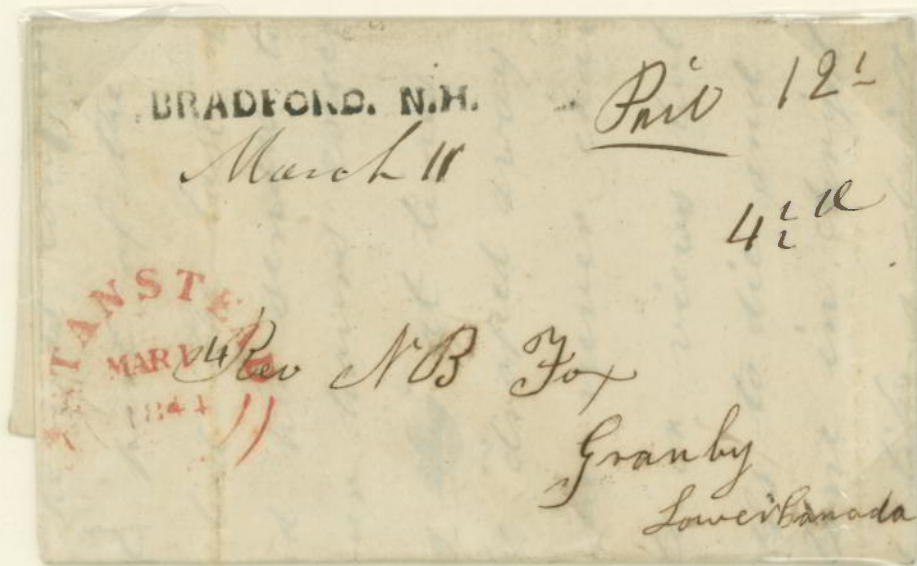 BRADFORD. N.H.
March 11
Paid 12½
4½d
STANSTEAD
MAR 14
1841
Rev N B Fox
Granby
Lower Canada